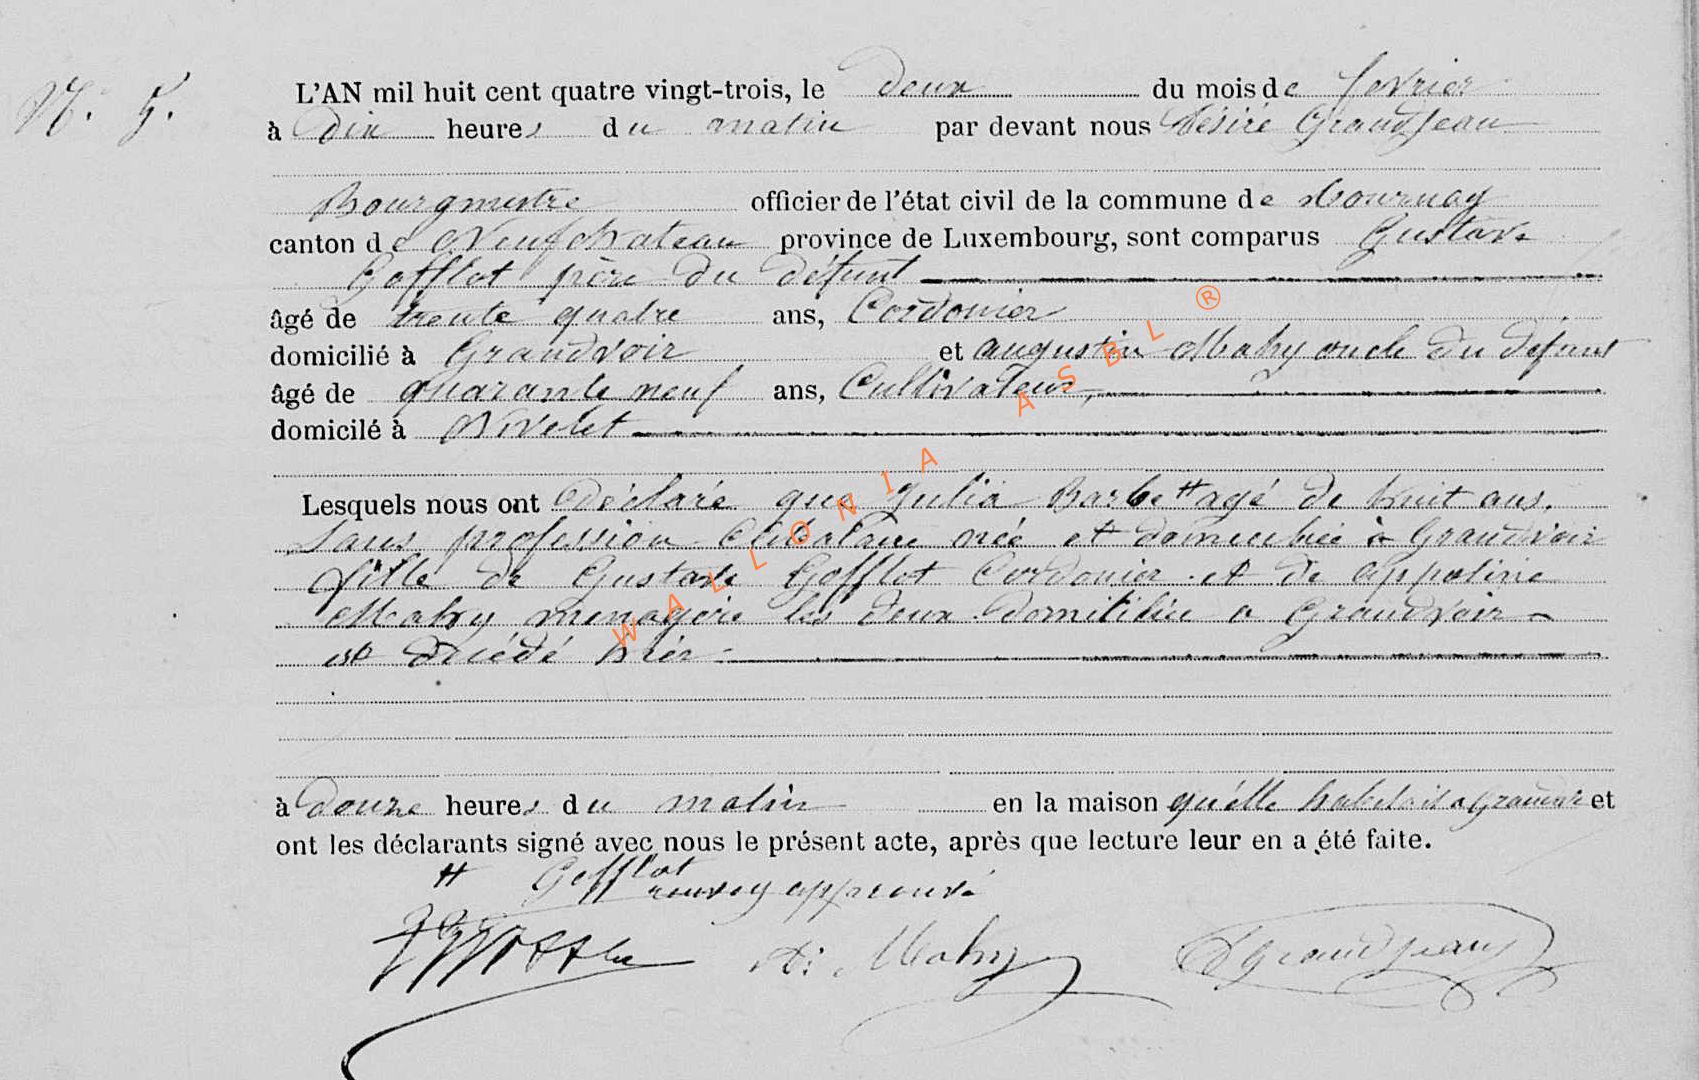 N. 5.
L'AN mil huit cent quatre vingt-trois, le deux du mois de fevrier
à dix heures du matin par devant nous Désiré Grandjean
Bourgmestre officier de l'état civil de la commune de Tournay
canton de Neufchateau province de Luxembourg, sont comparus Gustave
Gofflot père du défunt
âgé de trente quatre ans, Cordonier
domicilié à Grandvoir et augustin Mahy oncle du défunt
âgé de quarante neuf ans, Cultivateur,
domicilé à Nivelet
Lesquels nous ont déclaré que Julia Barbe # agé de huit ans,
sans profession Célibataire née et domiciliée à Grandvoir
fille de Gustave Gofflot Cordonier et de appoline
Mahy menagère les deux domicilièe a Grandvoir
est décédé hièr
à douze heures du matin en la maison qu'elle habitait a Grandvoir et
ont les déclarants signé avec nous le présent acte, après que lecture leur en a été faite.
# Gofflot
renvoy approuvé
A: Mahy DGrandjean
WALLONIA ASBL ®